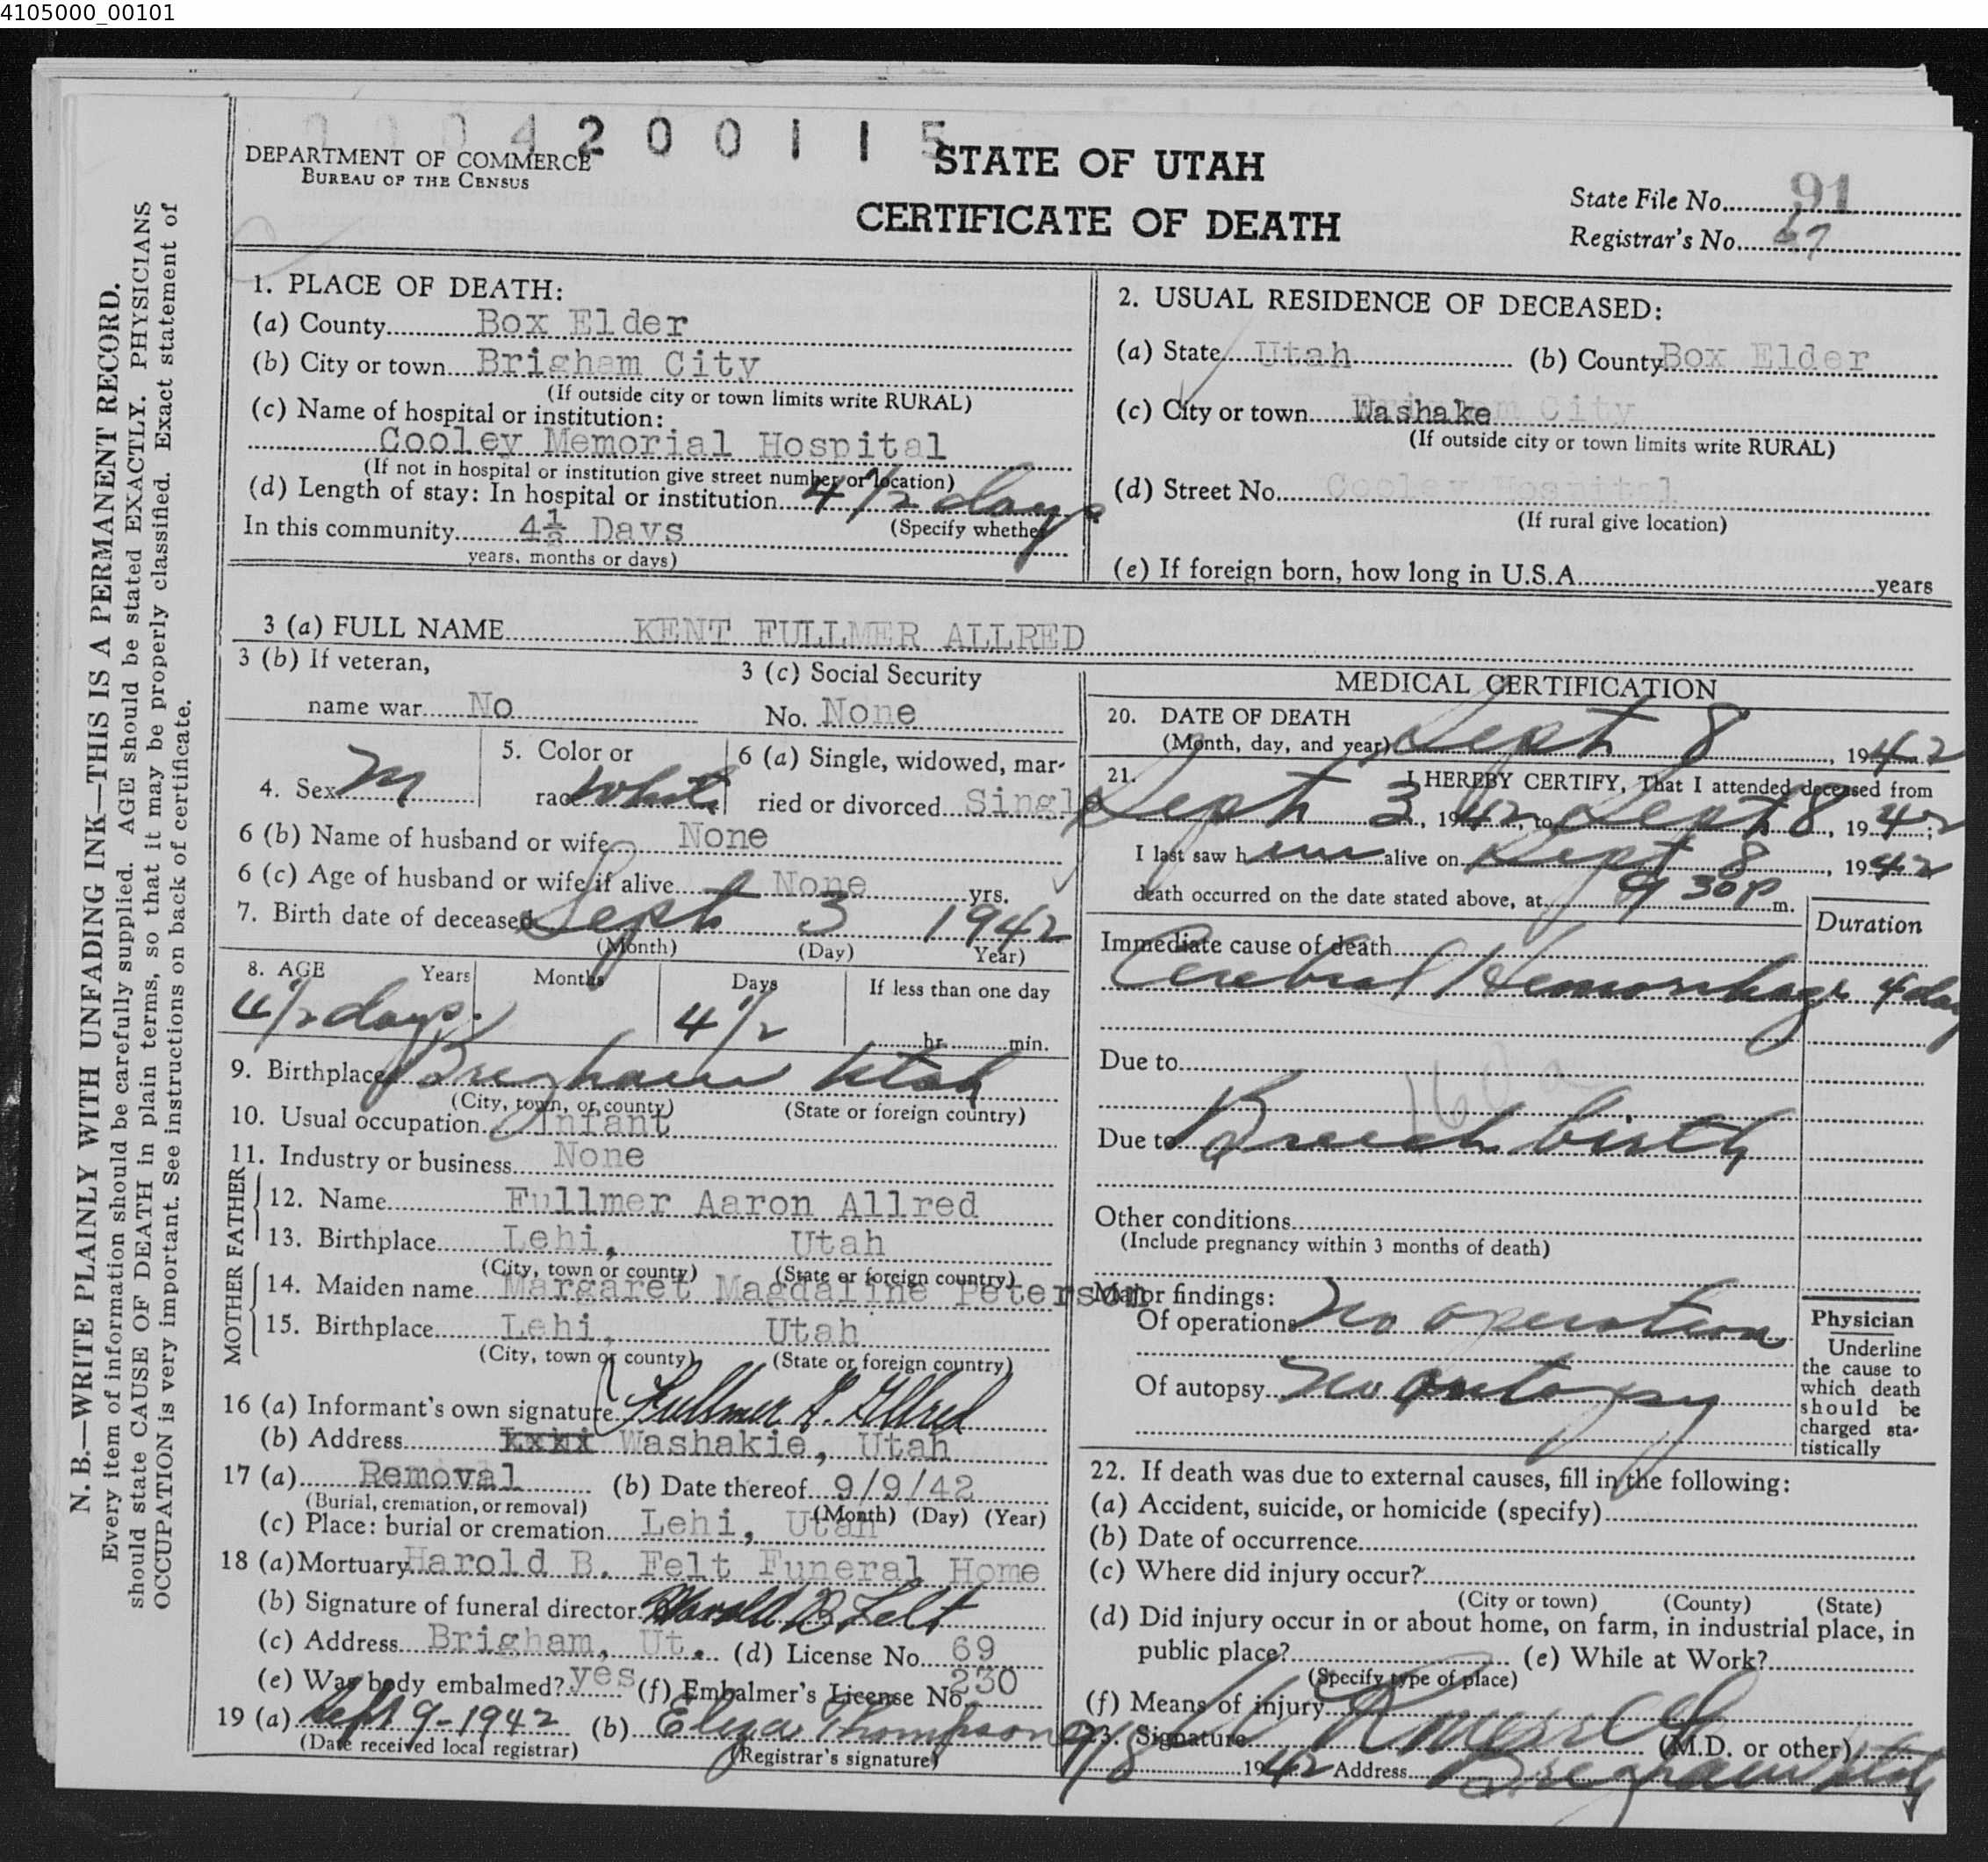 4105000_00101
0004200115
DEPARTMENT OF COMMERCE
BUREAU OF THE CENSUS
STATE OF UTAH
CERTIFICATE OF DEATH
State File No. 91
Registrar's No. 67
N. B.—WRITE PLAINLY WITH UNFADING INK—THIS IS A PERMANENT RECORD.
Every item of information should be carefully supplied. AGE should be stated EXACTLY. PHYSICIANS
should state CAUSE OF DEATH in plain terms, so that it may be properly classified. Exact statement of
OCCUPATION is very important. See instructions on back of certificate.
1. PLACE OF DEATH:
(a) County Box Elder
(b) City or town Brigham City
(If outside city or town limits write RURAL)
(c) Name of hospital or institution:
Cooley Memorial Hospital
(If not in hospital or institution give street number or location)
(d) Length of stay: In hospital or institution 4 1/2 days
(Specify whether
In this community 4½ Days
years, months or days)
2. USUAL RESIDENCE OF DECEASED:
(a) State Utah (b) County Box Elder
(c) City or town Washake
(If outside city or town limits write RURAL)
(d) Street No. Cooley Hospital
(If rural give location)
(e) If foreign born, how long in U.S.A. years
3 (a) FULL NAME KENT FULLMER ALLRED
3 (b) If veteran,
name war No
3 (c) Social Security
No. None
4. Sex M
5. Color or
race White
6 (a) Single, widowed, mar-
ried or divorced Single
6 (b) Name of husband or wife None
6 (c) Age of husband or wife if alive None yrs.
7. Birth date of deceased Sept 3 1942
(Month) (Day) Year)
8. AGE Years Months Days If less than one day
4 1/2 days. 4 1/2 hr. min.
9. Birthplace Brigham Utah
(City, town, or county) (State or foreign country)
10. Usual occupation Infant
11. Industry or business None
FATHER
12. Name Fullmer Aaron Allred
13. Birthplace Lehi, Utah
(City, town or county) (State or foreign country)
MOTHER
14. Maiden name Margaret Magdaline Peterson
15. Birthplace Lehi, Utah
(City, town or county) (State or foreign country)
16 (a) Informant's own signature Fullmer A. Allred
(b) Address Washakie, Utah
17 (a) Removal (b) Date thereof 9/9/42
(Burial, cremation, or removal) (Month) (Day) (Year)
(c) Place: burial or cremation Lehi, Utah
18 (a) Mortuary Harold B. Felt Funeral Home
(b) Signature of funeral director Harold B Felt
(c) Address Brigham, Ut. (d) License No. 69
(e) Was body embalmed? yes (f) Embalmer's License No. 230
19 (a) Sept 9-1942 (b) Eliza Thompson
(Date received local registrar) (Registrar's signature)
MEDICAL CERTIFICATION
20. DATE OF DEATH
(Month, day, and year) Sept 8, 1942
21. I HEREBY CERTIFY, That I attended deceased from
Sept 3, 1942, to Sept 8, 1942;
I last saw him alive on Sept 8, 1942
death occurred on the date stated above, at 9 30 P m.
Duration
Immediate cause of death
Cerebral Hemorrhage 4 day
Due to
160a
Due to Breech birth
Other conditions
(Include pregnancy within 3 months of death)
Major findings:
Of operations no operation
Of autopsy no autopsy
Physician
Underline
the cause to
which death
should be
charged sta-
tistically
22. If death was due to external causes, fill in the following:
(a) Accident, suicide, or homicide (specify)
(b) Date of occurrence
(c) Where did injury occur?
(City or town) (County) (State)
(d) Did injury occur in or about home, on farm, in industrial place, in
public place? (e) While at Work?
(Specify type of place)
(f) Means of injury
23. Signature (M.D. or other)
9/8 1942 Address Brigham Utah